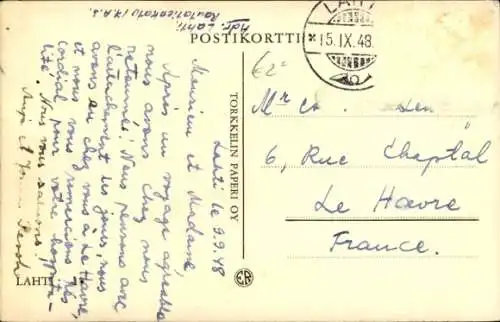 Adr. Lahti,
Rautatienkatu 17.A.2
POSTIKORTTI
LAHTI
15.IX.48.
€2
TORKKELIN PAPERI OY
LAHTI
Lahti le 9.9.48
Monsieur et Madame,
Après un voyage agréable
nous avons chez nous
retournés. Nous pensons avec
l'attachement les jours, nous
avons eu chez vous à Le Havre,
et nous vous remercions très
cordial pour votre hospita-
lité.
Nous vous saluons!
et
Mr Co.
6, Rue Chaptal
Le Havre
France.
ER